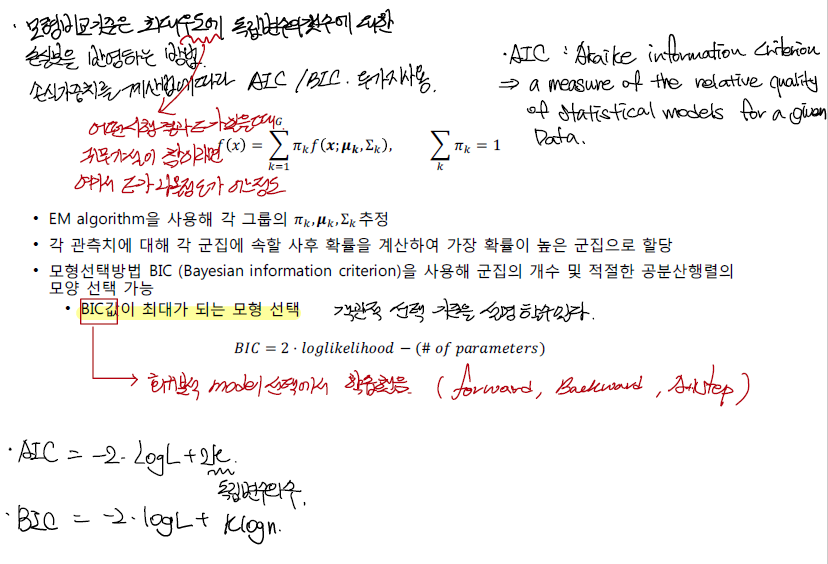 · 모형비교기준은 최대우도에 독립변수의 갯수에 대한
손실분을 반영하는 방법.
손실가중치를 계산법에 따라 AIC / BIC 두가지 사용.
· AIC : Akaike information criterion
⇒ a measure of the relative quality
of statistical models for a given
Data.
어떤 시행 결과 E가
귀무가설이 참이라면
여기서 E가 나올 정도가 어느정도
f(x) = ∑_{k=1}^{G} π_k f(x; μ_k, Σ_k), ∑_k π_k = 1
• EM algorithm을 사용해 각 그룹의 π_k, μ_k, Σ_k 추정
• 각 관측치에 대해 각 군집에 속할 사후 확률을 계산하여 가장 확률이 높은 군집으로 할당
• 모형선택방법 BIC (Bayesian information criterion)을 사용해 군집의 개수 및 적절한 공분산행렬의
모양 선택 가능
• BIC값이 최대가 되는 모형 선택 객관적 선택 기준을 설명 할수있다.
BIC = 2 · loglikelihood − (# of parameters)
회귀분석 model 선택에서 학습했음. (forward, Backward, )
· AIC = -2· LogL + 2k.
독립변수의 수.
· BIC = -2· logL + k logn.